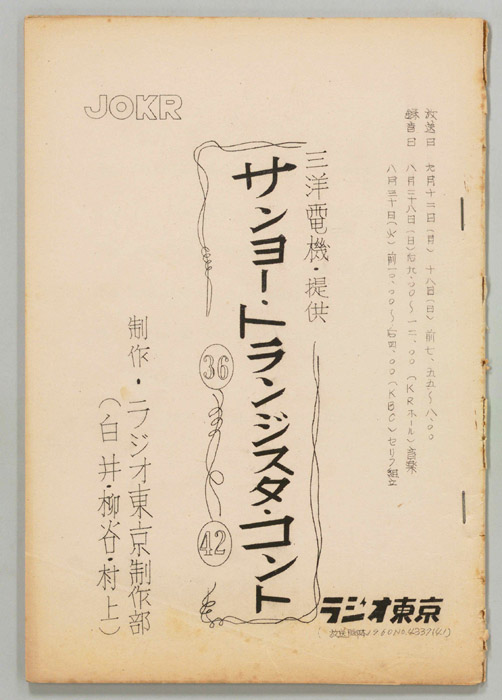 放送日 九月十二日(月) 十八日(日) 前七、五五〜八、〇〇
録音日 八月二十八日(日)右九、〇〇〜一二、〇〇(KRホール)音楽
八月三十日(火)前一〇、〇〇〜右四、〇〇(KBC)セリフ組立
三洋電機・提供
サンヨー・トランジスタ・コント
36
42
JOKR
制作・ラジオ東京制作部
(白井・柳谷・村上)
ラジオ東京